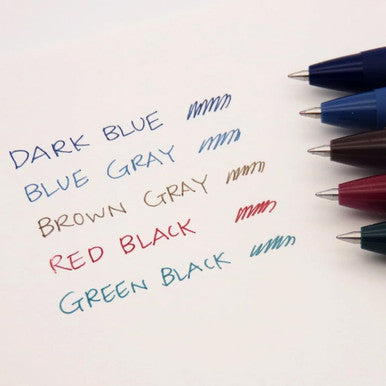 DARK BLUE
BLUE GRAY
BROWN GRAY
RED BLACK
GREEN BLACK